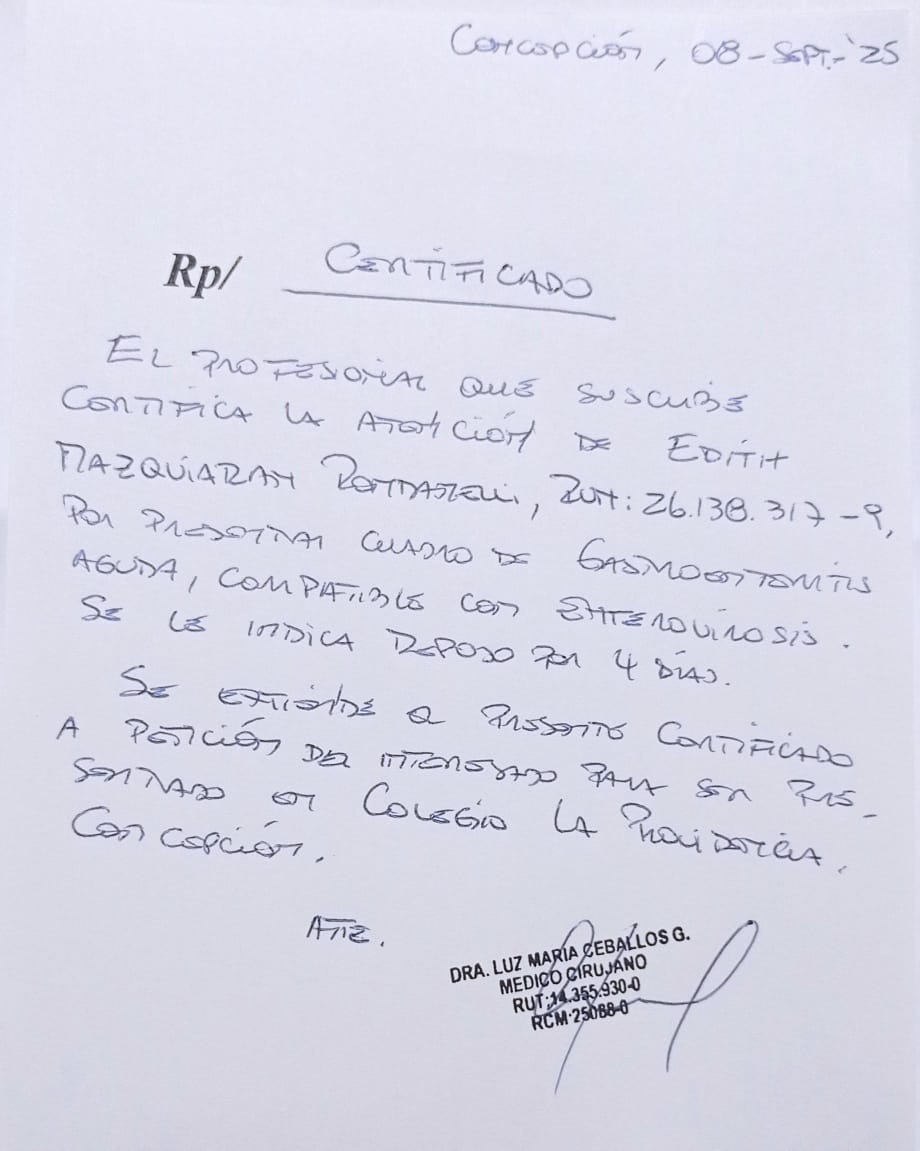 Concepción, 08-Sept.-'25
Rp/ Certificado
El profesional que suscribe
certifica la atención de Edith
Mazquiaran, Rut: 26.138.317-9,
por presentar cuadro de gastroenteritis
aguda, compatible con enterovirosis.
Se le indica reposo por 4 días.
Se extiende el presente certificado
a petición del interesado para ser pre-
sentado en Colegio La Providencia.
Concepción.
Atte.
DRA. LUZ MARÍA CEBALLOS G.
MEDICO CIRUJANO
RUT:14.355.930-0
RCM-25088-0